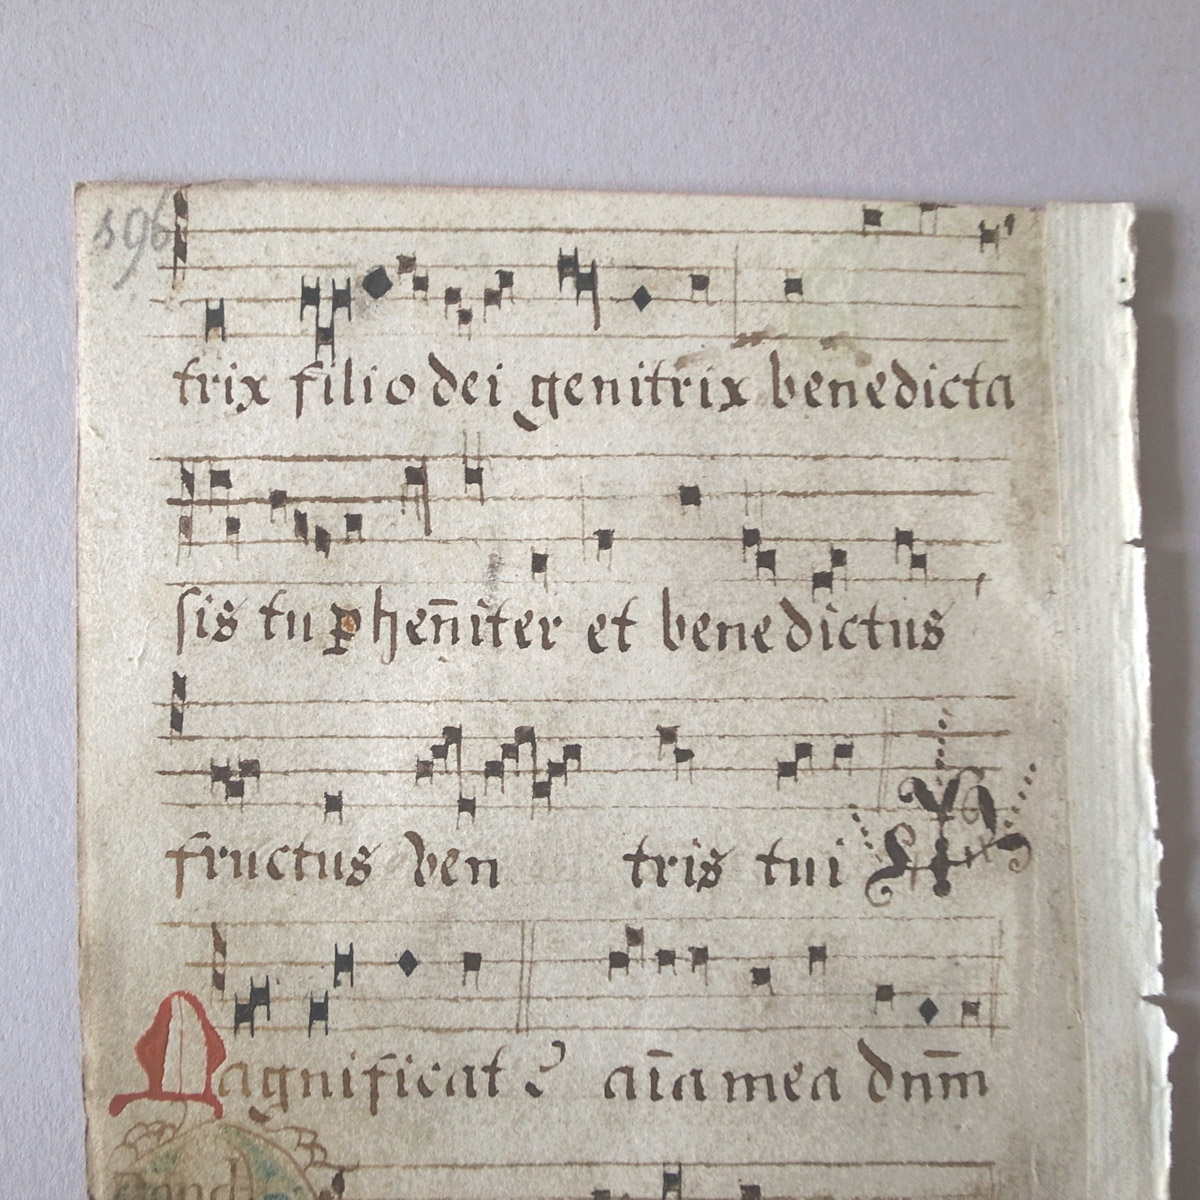 196
trix filio dei genitrix benedicta
sis tu ꝑhen̄iter et benedictus
fructus ven tris tui
Magnificat aīa mea dnm̄